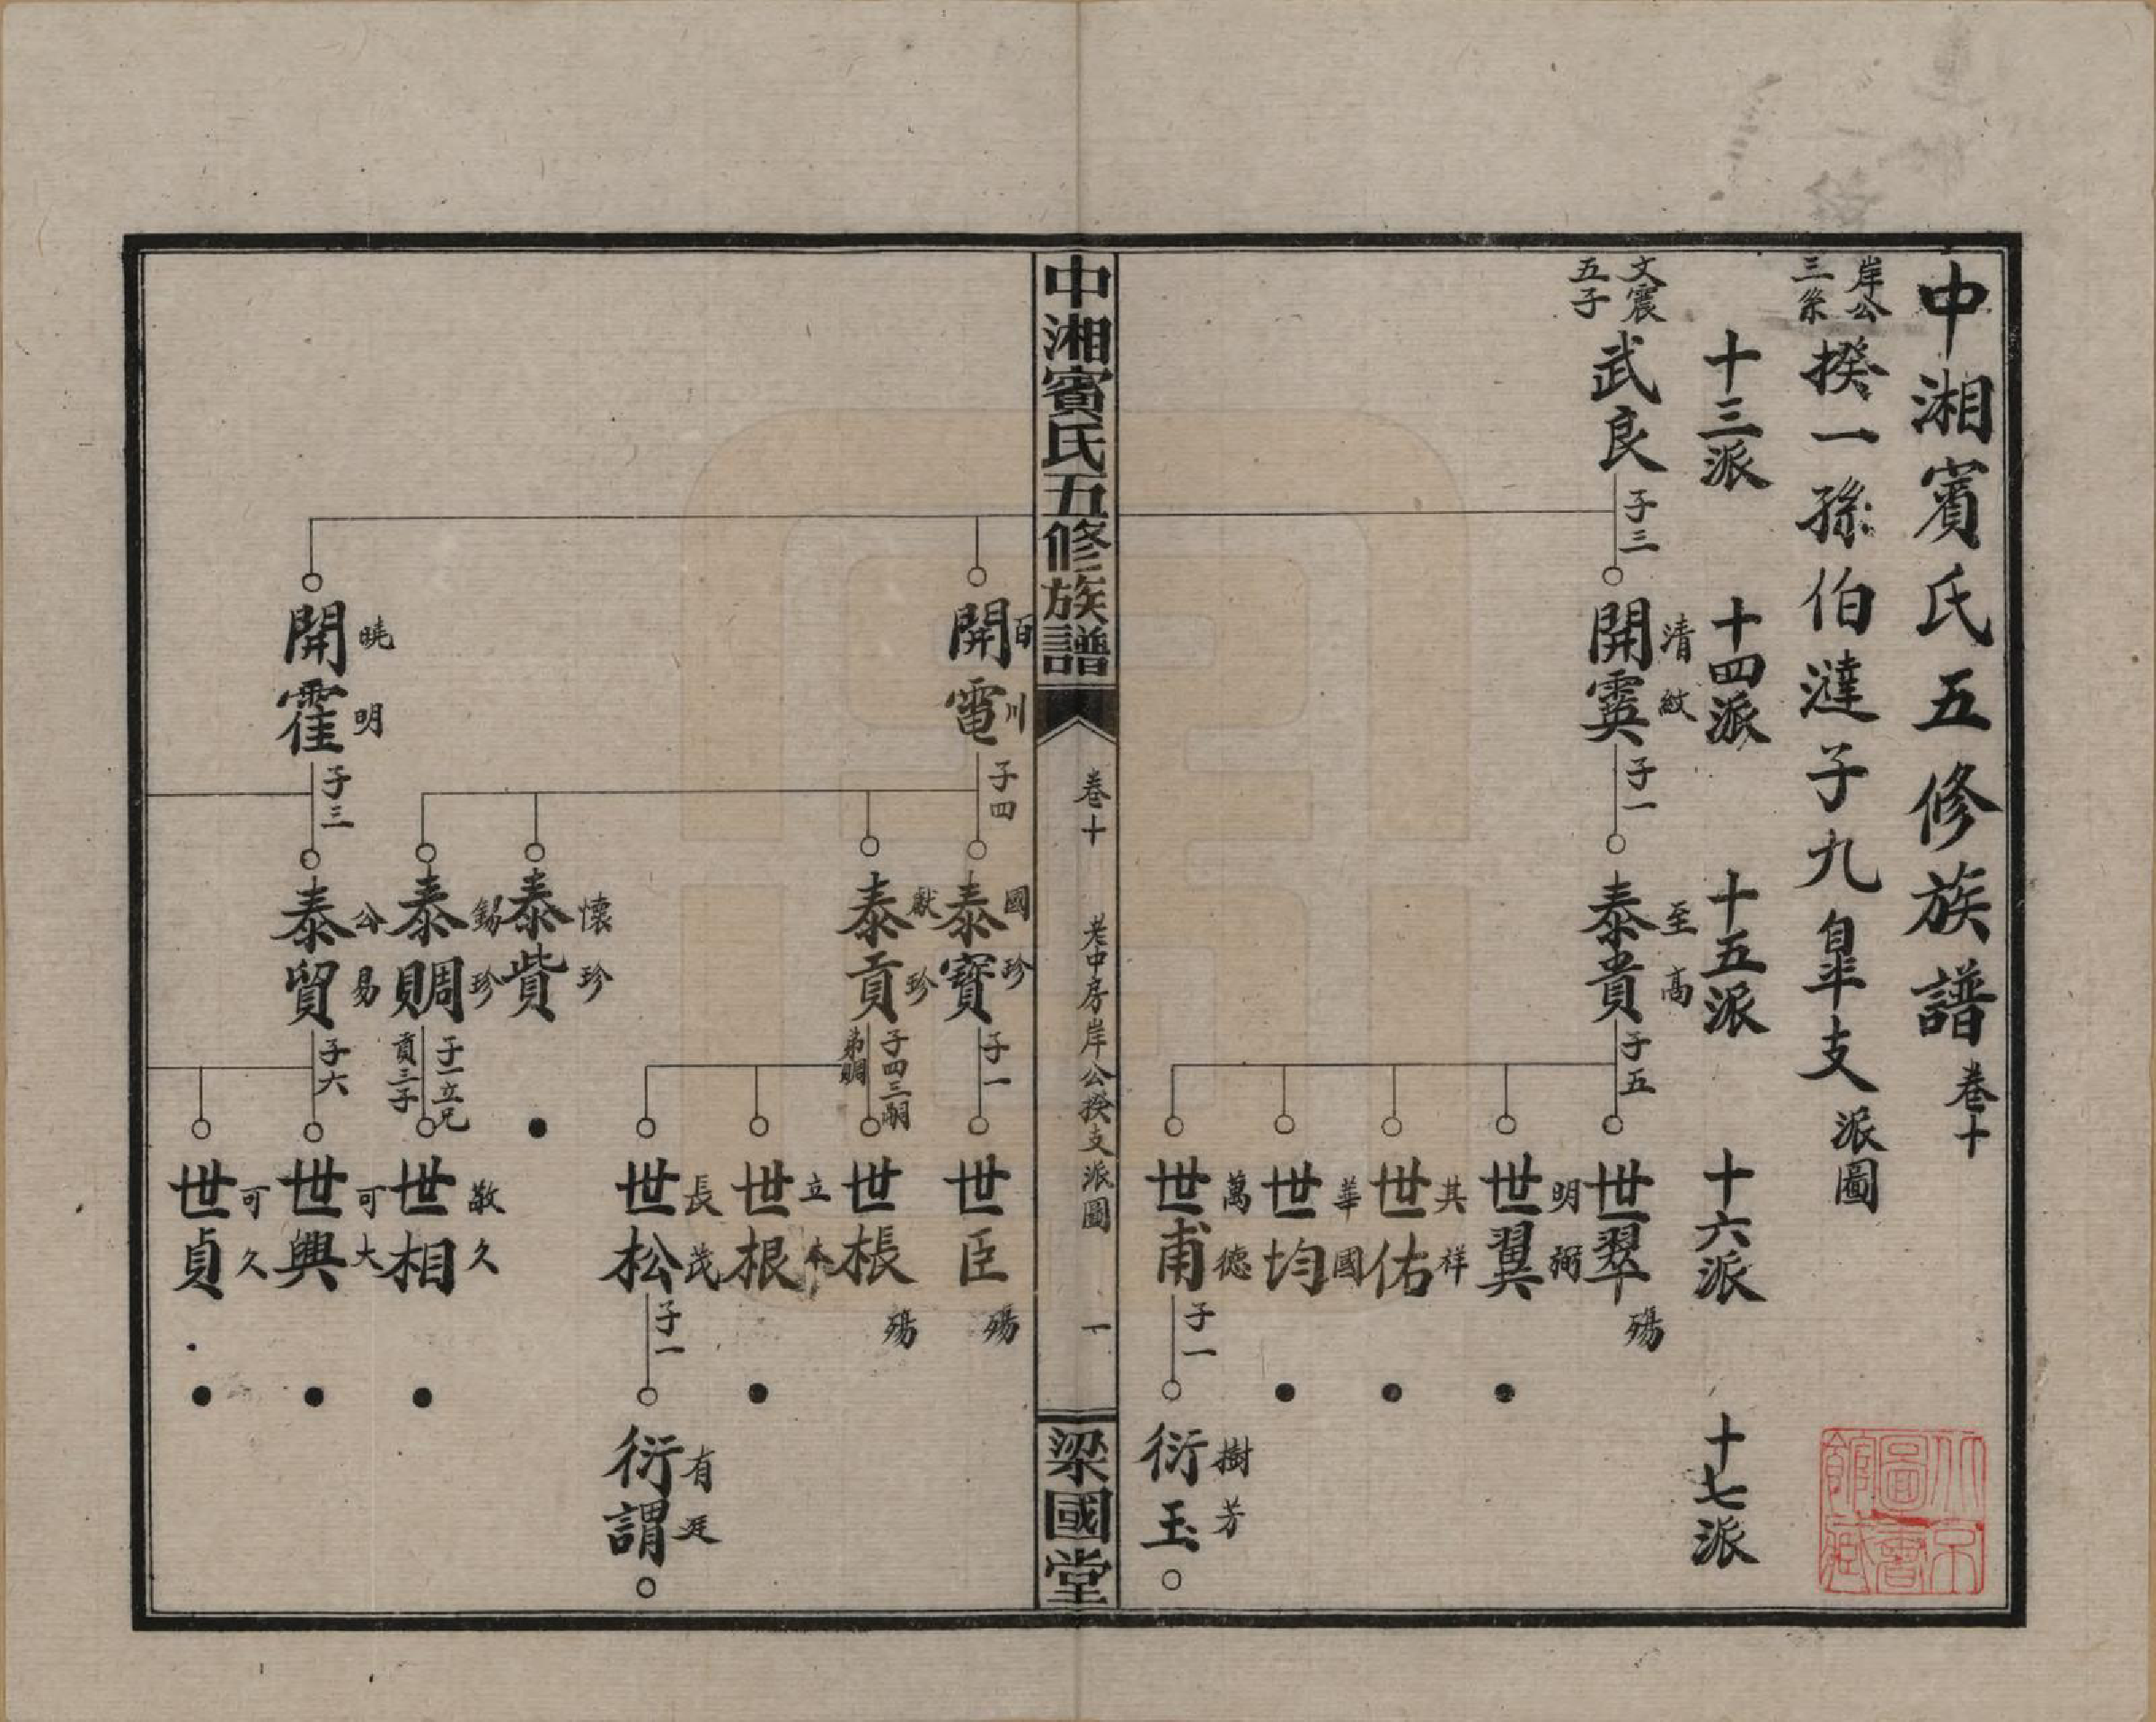 中湘賓氏五修族譜 卷十
岸公三系 揆一孫伯澾子九臯支派圖
十三派
十四派
十五派
十六派
十七派
文震五子 武良 子三
開霙 清紋 子一
泰貴 至高 子五
世翠 殤
世翼 明弼
世佑 其祥
世均 華國
世甫 萬德 子一
衍玉 樹芳
中湘賓氏五修族譜
卷十
老中房岸公揆支派圖
一
梁國堂
開電 百川 子四
泰寶 國珍 子一
世臣 殤
泰貢 獻珍 子四三嗣弟賙
世棖 殤
世根 立本
世松 長茂 子一
衍謂 有廷
泰貲 懷珍
泰賙 錫珍 子一立兄貢三子
世相 敬久
開霍 曉明 子三
泰貿 公易 子六
世興 可大
世貞 可久
北京圖書館藏